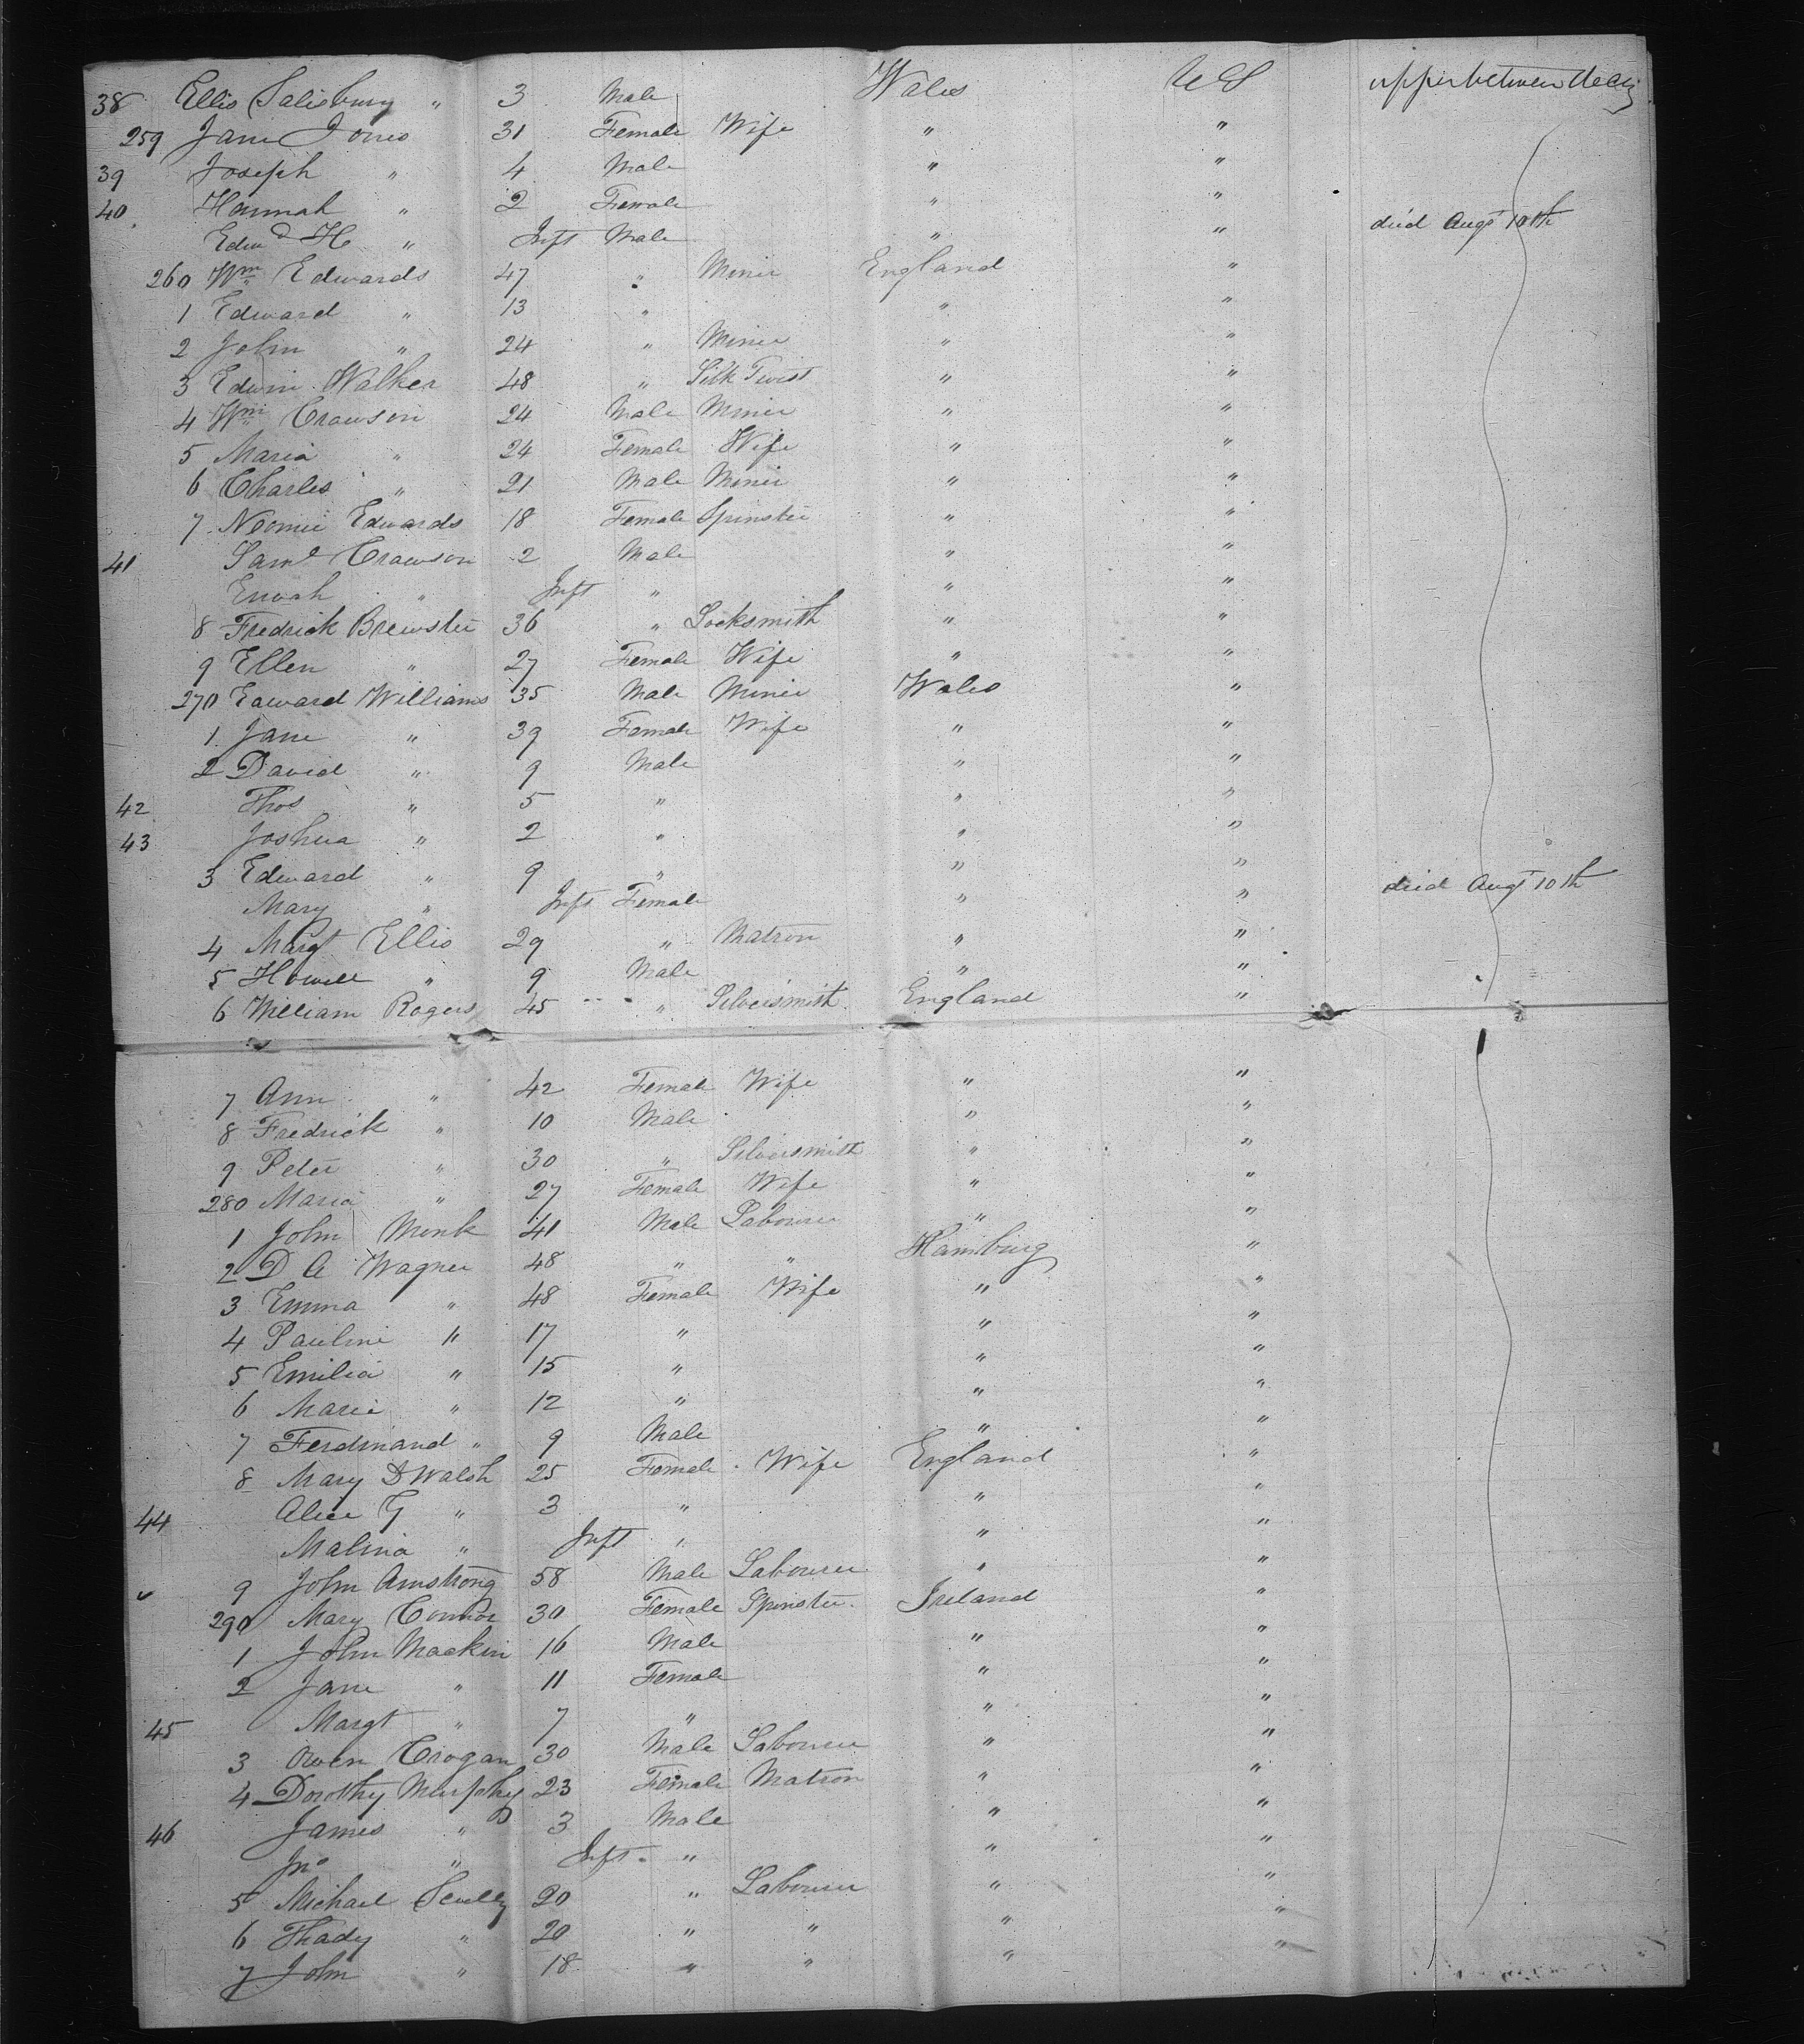 38 Ellis Salisbury " 3 Male Wales US upper between decks
259 Jane Jones 31 Female Wife " "
39 Joseph " 4 Male " "
40 Hannah " 2 Female " "
Edwd H " Inft Male " " died Augt 10th
260 Wm Edwards 47 " Miner England "
1 Edward " 13 " " "
2 John " 24 " Miner " "
3 Edwin Walker 48 " Silk Twist " "
4 Wm Crawson 24 Male Miner " "
5 Maria " 24 Female Wife " "
6 Charles " 21 Male Miner " "
7 Neomie Edwards 18 Female Spinster " "
41 Saml Crawson 2 Male " "
Enoah " Inft " " "
8 Fredrick Brewster 36 " Locksmith " "
9 Ellen " 27 Female Wife " "
270 Edward Williams 35 Male Miner Wales "
1 Jane " 39 Female Wife " "
2 David " 9 Male " "
42 Thos " 5 " " "
43 Joshua " 2 " " "
3 Edward " 9 " " "
Mary " Inft Female " " died Augt 10th
4 Margt Ellis 29 " Matron " "
5 Howell " 9 Male " "
6 William Rogers 45 " Silversmith England "
7 Ann " 42 Female Wife " "
8 Fredrick " 10 Male " "
9 Peter " 30 " Silversmith " "
280 Maria " 27 Female Wife " "
1 John Monk 41 Male Labourer " "
2 D A Wagner 48 " " Hamburg "
3 Emma " 48 Female Wife " "
4 Pauline " 17 " " "
5 Emilia " 15 " " "
6 Marie " 12 " " "
7 Ferdinand " 9 Male " "
8 Mary D Walsh 25 Female Wife England "
44 Alice G " 3 " " "
Malina " Inft " " "
9 John Armstrong 58 Male Labourer " "
290 Mary Connor 30 Female Spinster Ireland "
1 John Mackin 16 Male " "
2 Jane " 11 Female " "
45 Margt " 7 " " "
3 Owen Crogan 30 Male Labourer " "
4 Dorothy Murphy 23 Female Matron " "
46 James " 3 Male " "
Jno " Inft " " "
5 Michael Scully 20 " Labourer " "
6 Thady " 20 " " " "
7 John " 18 " " " "